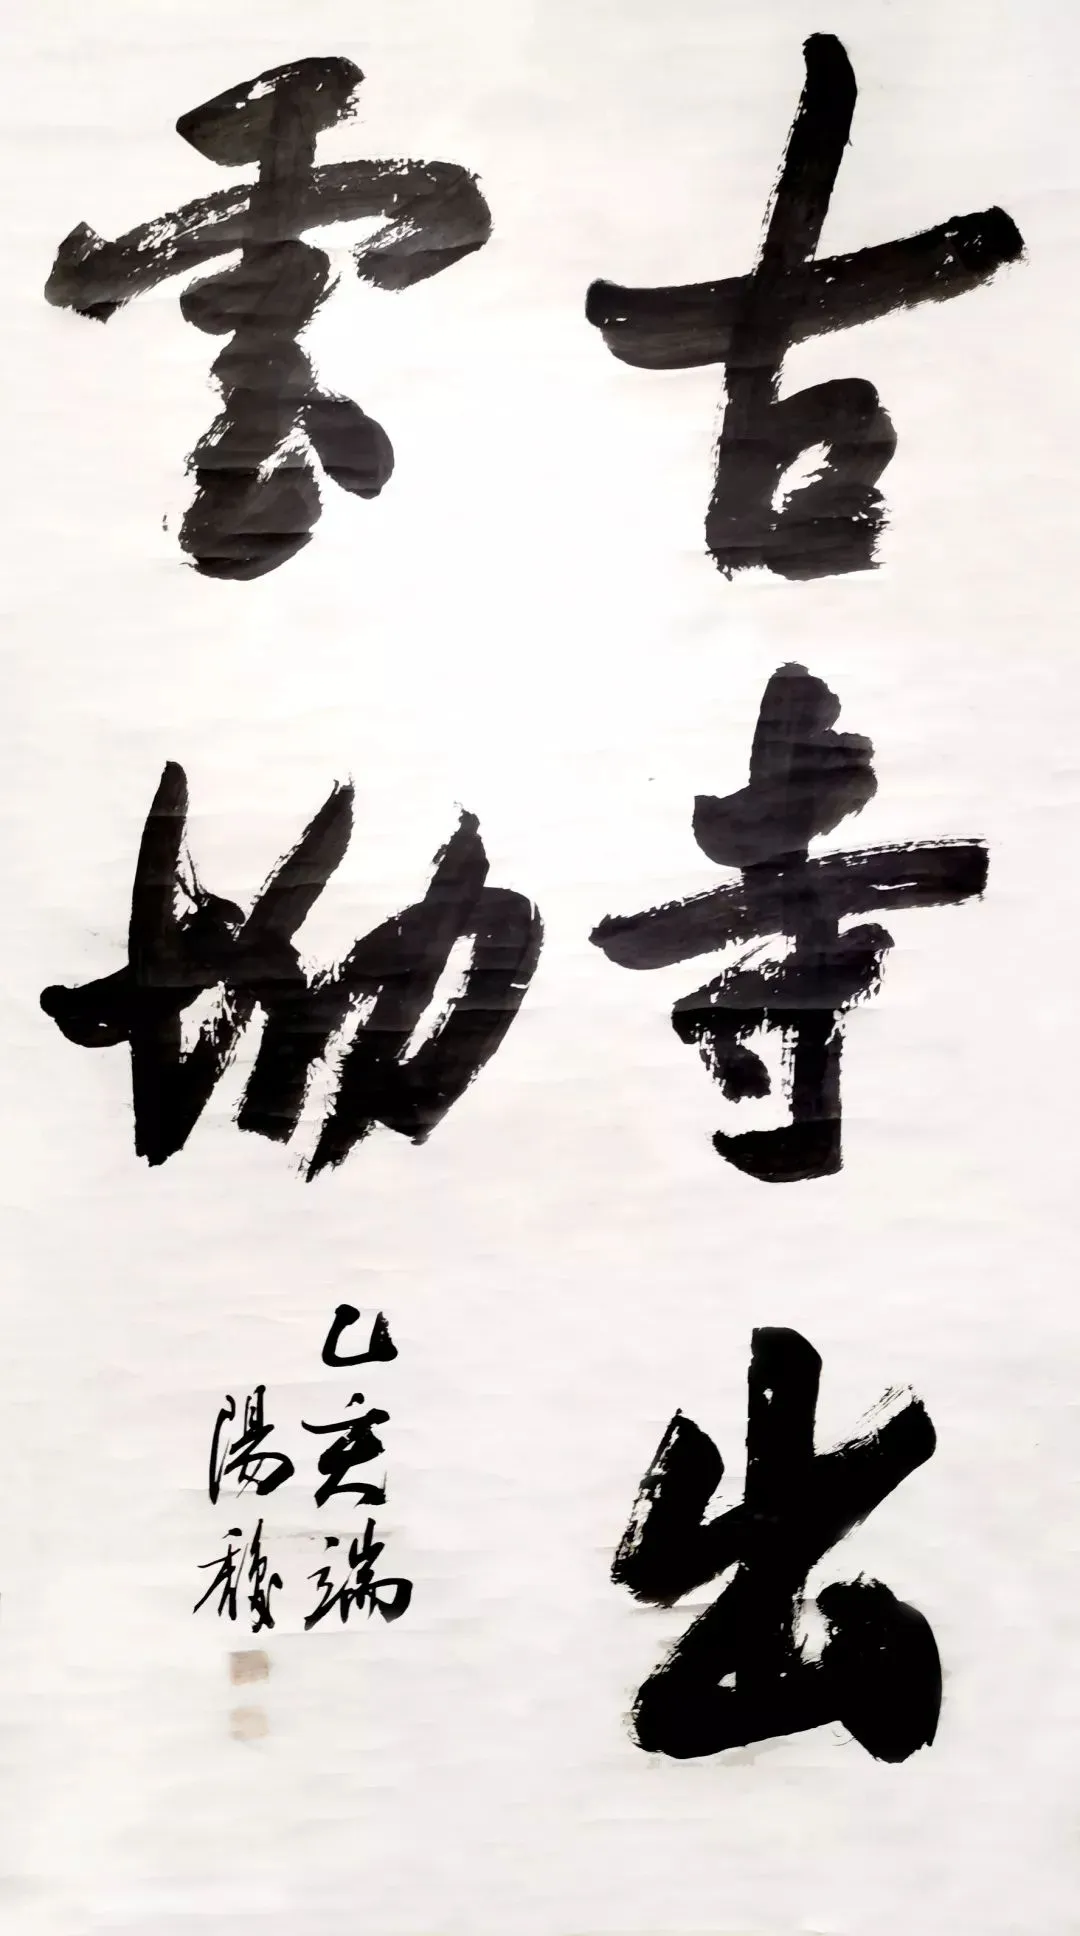 古寺出
雲坳
乙亥端
陽